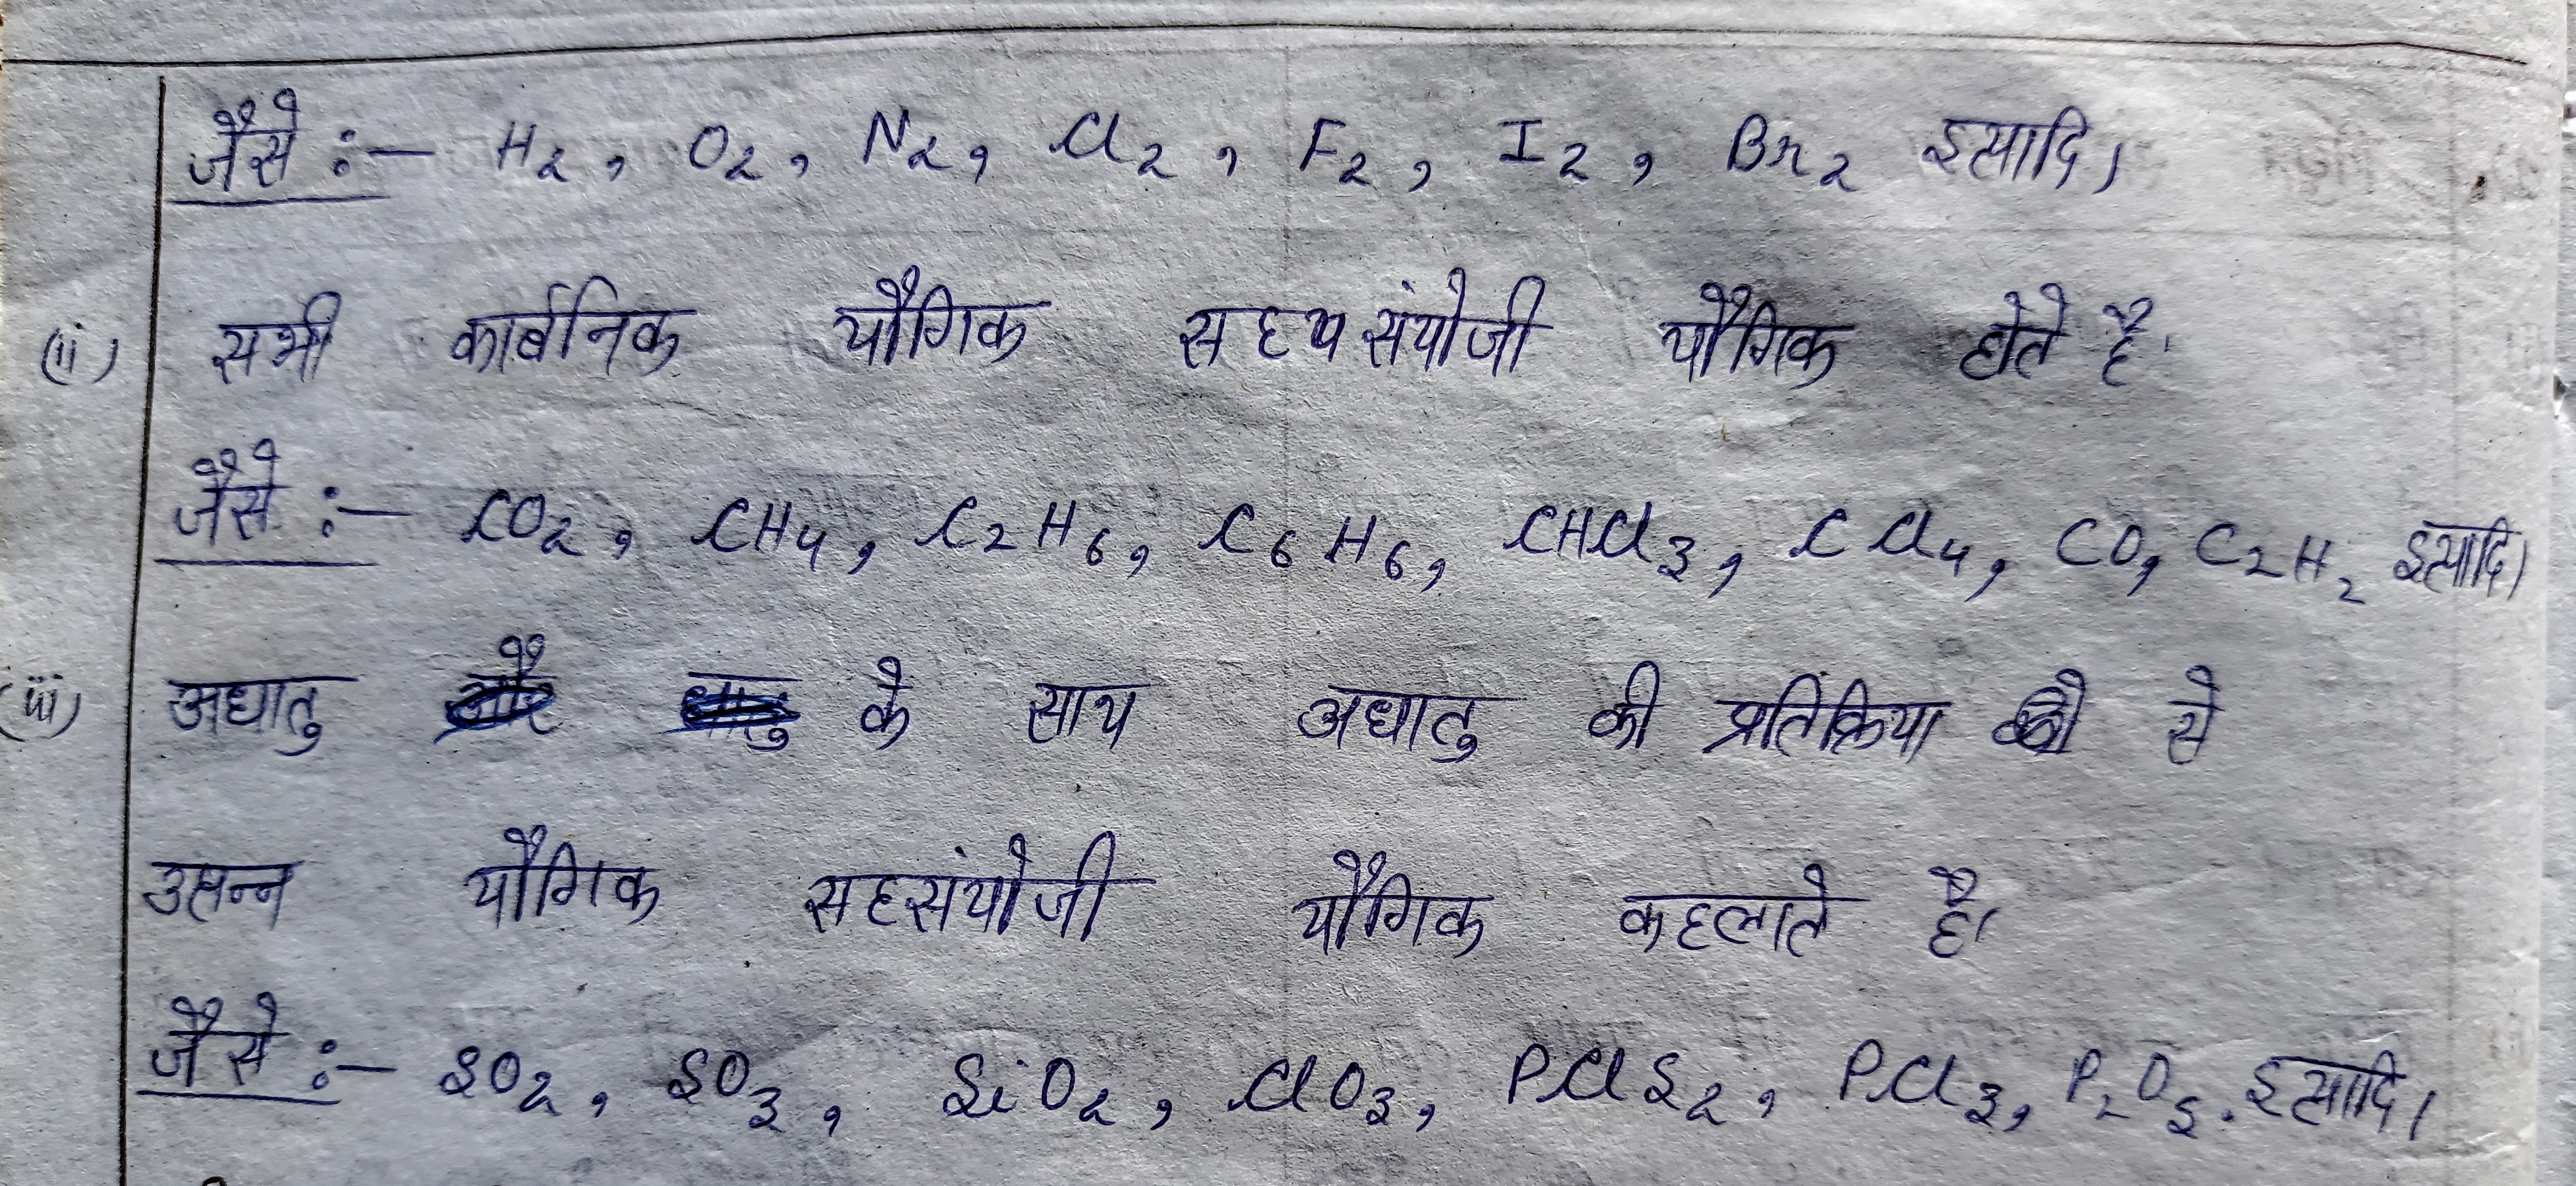 जैसे :— H₂, O₂, N₂, Cl₂, F₂, I₂, Br₂ इत्यादि।
(ii) सभी कार्बनिक यौगिक सहसंयोजी यौगिक होते है।
जैसे :— CO₂, CH₄, C₂H₆, C₆H₆, CHCl₃, CCl₄, CO, C₂H₂ इत्यादि।
(iii) अधातु के साथ अधातु की प्रतिक्रिया से
उत्पन्न यौगिक सहसंयोजी यौगिक कहलाते है।
जैसे :— SO₂, SO₃, SiO₂, ClO₃, PClS₂, PCl₃, P₂O₅. इत्यादि।